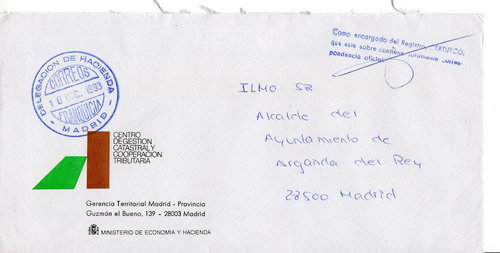 DELEGACION DE HACIENDA
CORREOS
10 DIC. 1993
FRANQUICIA
- MADRID -
Como encargado del Registro, CERTIFICO,
que este sobre contiene solamente corres-
pondencia oficial.
ILMO. SR.
Alcalde del
Ayuntamiento de
Arganda del Rey
28500 Madrid
CENTRO
DE GESTION
CATASTRAL Y
COOPERACION
TRIBUTARIA
Gerencia Territorial Madrid - Provincia
Guzmán el Bueno, 139 - 28003 Madrid
MINISTERIO DE ECONOMIA Y HACIENDA